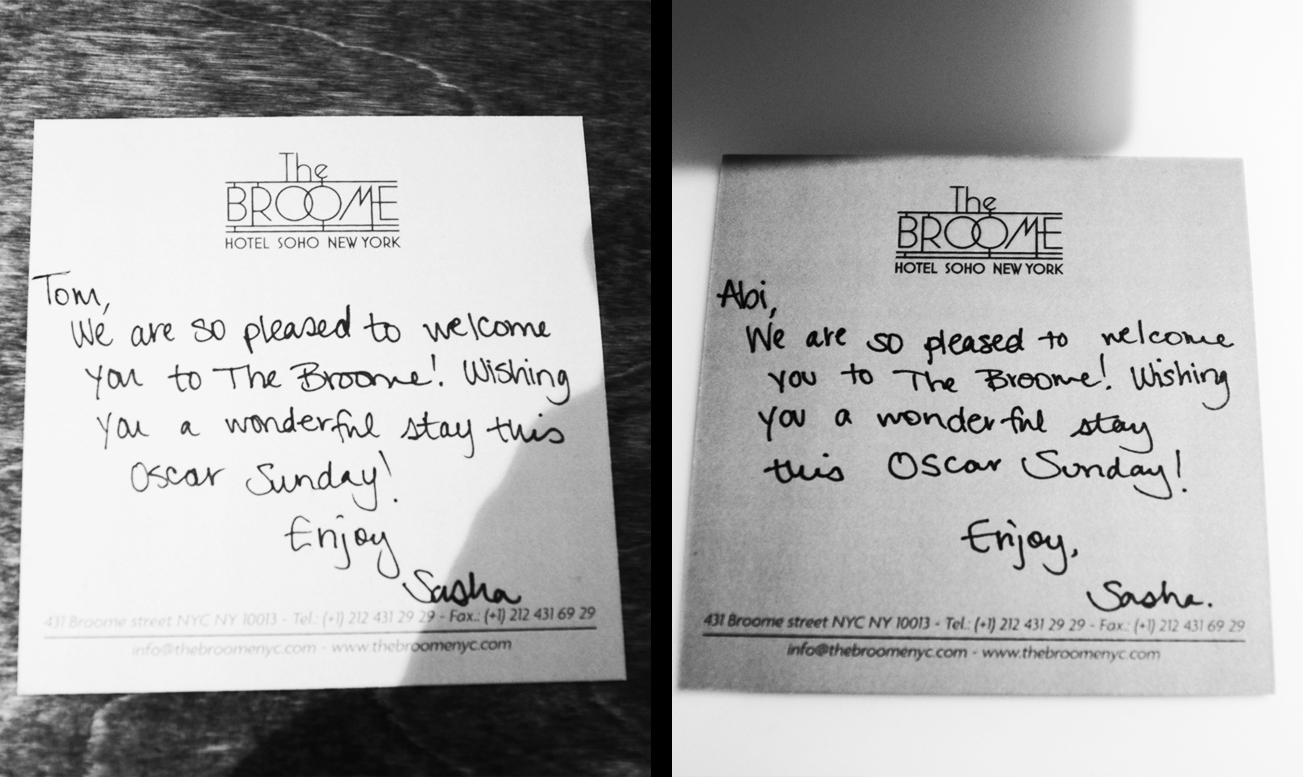 The
BROOME
HOTEL SOHO NEW YORK
Tom,
We are so pleased to welcome
you to The Broome! Wishing
you a wonderful stay this
Oscar Sunday!
Enjoy
Sasha
431 Broome street NYC NY 10013 - Tel.: (+1) 212 431 29 29 - Fax.: (+1) 212 431 69 29
info@thebroomenyc.com - www.thebroomenyc.com
The
BROOME
HOTEL SOHO NEW YORK
Abi,
We are so pleased to welcome
you to The Broome! Wishing
you a wonderful stay
this Oscar Sunday!
Enjoy,
Sasha.
431 Broome street NYC NY 10013 - Tel.: (+1) 212 431 29 29 - Fax.: (+1) 212 431 69 29
info@thebroomenyc.com - www.thebroomenyc.com